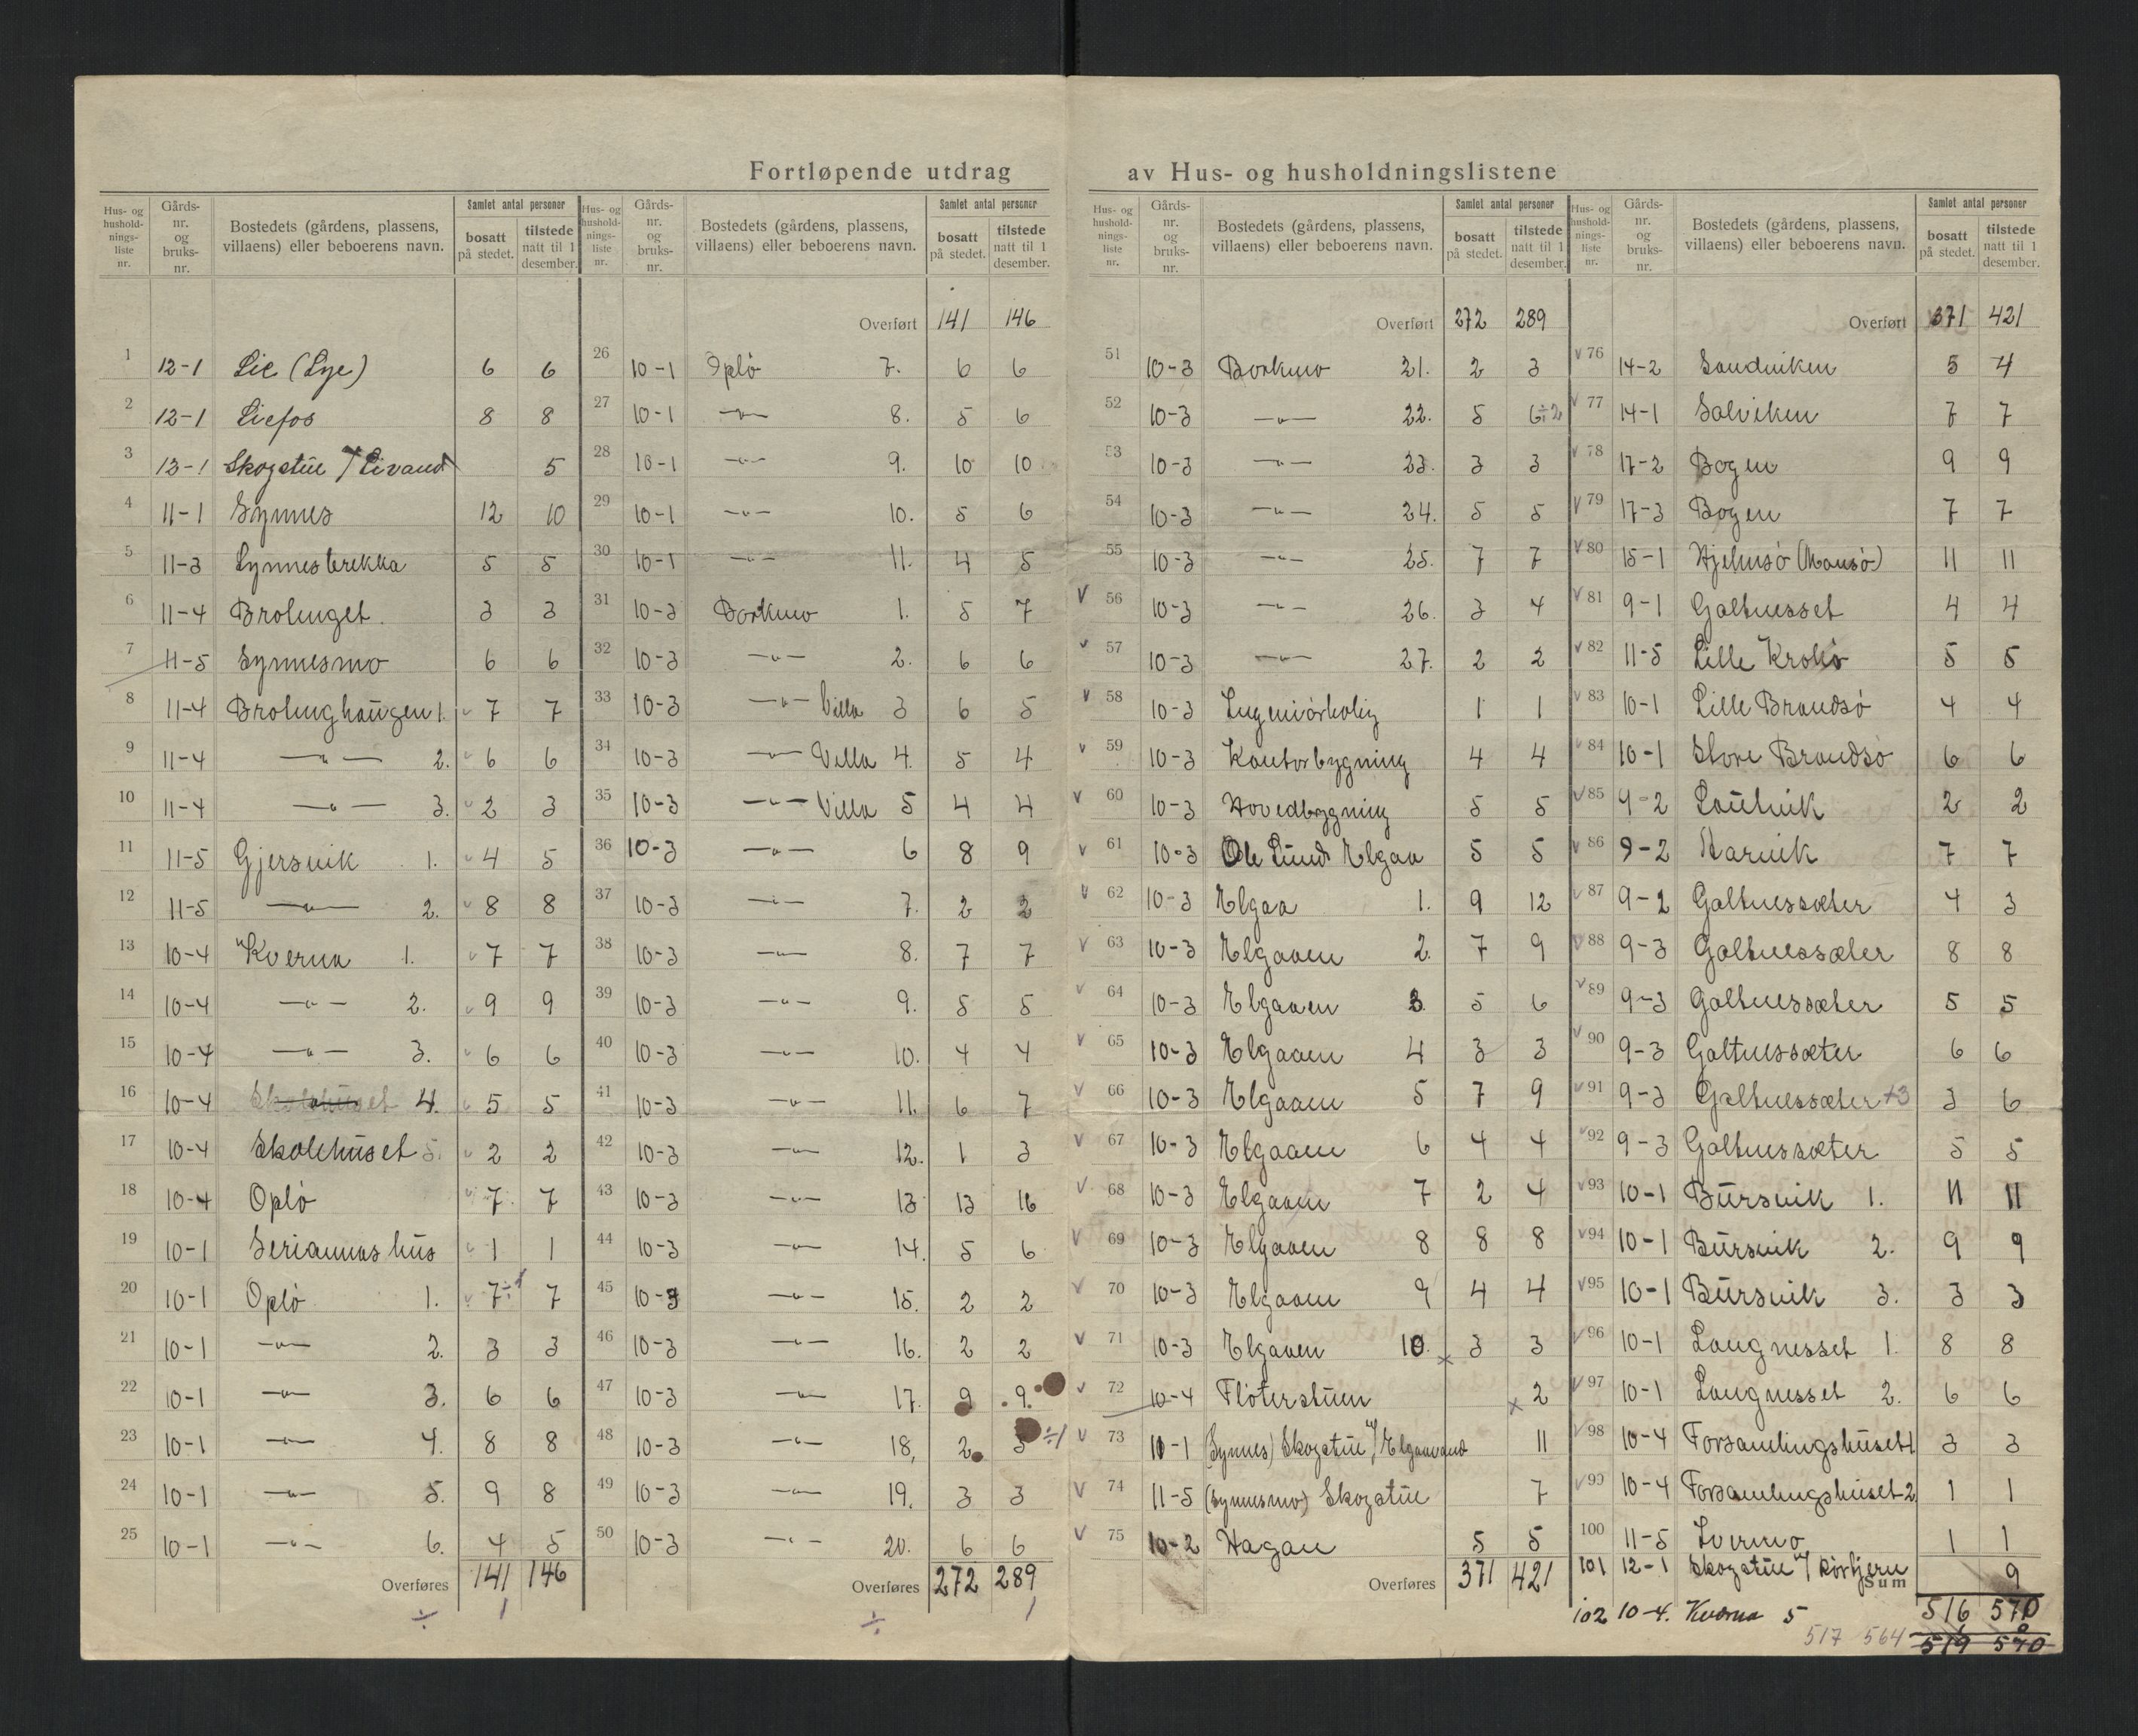 Fortløpende utdrag av Hus- og husholdningslistene
Hus- og hushold-nings-liste nr. | Gårds-nr. og bruks-nr. | Bostedets (gårdens, plassens, villaens) eller beboerens navn. | Samlet antal personer | bosatt på stedet. | tilstede natt til 1 desember.
1 12-1 Lie (Lye) 6 6
2 12-1 Liefos 8 8
3 13-1 Skogstue v/ Livand 5
4 11-1 Synnes 12 10
5 11-3 Synnesbrekka 5 5
6 11-4 Brolinget. 3 3
7 11-5 Synnesmo 6 6
8 11-4 Brolinghaugen 1. 7 7
9 11-4 —"— 2. 6 6
10 11-4 —"— 3. 2 3
11 11-5 Gjersvik 1. 4 5
12 11-5 —"— 2. 8 8
13 10-4 Kverna 1. 7 7
14 10-4 —"— 2. 9 9
15 10-4 —"— 3. 6 6
16 10-4 Skolehuset 4. 5 5
17 10-4 Skolehuset 5. 2 2
18 10-4 Oplø 7 7
19 10-1 Seriannas hus 1 1
20 10-1 Oplø 1. 7 ÷1 7
21 10-1 —"— 2. 3 3
22 10-1 —"— 3. 6 6
23 10-1 —"— 4. 8 8
24 10-1 —"— 5. 9 8
25 10-1 —"— 6. 4 5
Overføres 141 146
÷ 1
Hus- og hushold-nings-liste nr. | Gårds-nr. og bruks-nr. | Bostedets (gårdens, plassens, villaens) eller beboerens navn. | Samlet antal personer | bosatt på stedet. | tilstede natt til 1 desember.
Overført 141 146
26 10-1 Oplø 7. 6 6
27 10-1 —"— 8. 5 6
28 10-1 —"— 9. 10 10
29 10-1 —"— 10. 5 6
30 10-1 —"— 11. 4 5
31 10-3 Borkmo 1. 5 7
32 10-3 —"— 2. 6 6
33 10-3 —"— Villa 3 6 5
34 10-3 —"— Villa 4. 5 4
35 10-3 —"— Villa 5 4 4
36 10-3 —"— 6 8 9
37 10-3 —"— 7. 2 2
38 10-3 —"— 8. 7 7
39 10-3 —"— 9. 5 5
40 10-3 —"— 10. 4 4
41 10-3 —"— 11. 6 7
42 10-3 —"— 12. 1 3
43 10-3 —"— 13 13 16
44 10-3 —"— 14. 5 6
45 10-3 —"— 15. 2 2
46 10-3 —"— 16. 2 2
47 10-3 —"— 17. 9 9.
48 10-3 —"— 18, 2 3 ÷1
49 10-3 —"— 19. 3 3
50 10-3 —"— 20. 6 6
Overføres 272 289
÷ 1
Hus- og hushold-nings-liste nr. | Gårds-nr. og bruks-nr. | Bostedets (gårdens, plassens, villaens) eller beboerens navn. | Samlet antal personer | bosatt på stedet. | tilstede natt til 1 desember.
Overført 272 289
51 10-3 Borkmo 21. 2 3
52 10-3 —"— 22. 5 6÷2
53 10-3 —"— 23. 3 3
54 10-3 —"— 24. 5 5
55 10-3 —"— 25. 7 7
v 56 10-3 —"— 26. 3 4
v 57 10-3 —"— 27. 2 2
v 58 10-3 Ingeniørbolig 1 1
v 59 10-3 Kontorbygning 4 4
v 60 10-3 Hovedbygning 5 5
v 61 10-3 Ole Lund Elgaa 5 5
v 62 10-3 Elgaa 1. 9 12
v 63 10-3 Elgaaen 2. 7 9
v 64 10-3 Elgaaen 3. 5 6
v 65 10-3 Elgaaen 4 3 3
v 66 10-3 Elgaaen 5 7 9
v 67 10-3 Elgaaen 6 4 4
v 68 10-3 Elgaaen 7 2 4
v 69 10-3 Elgaaen 8 8 8
v 70 10-3 Elgaaen 9 4 4
v 71 10-3 Elgaaen 10. x 3 3
v 72 10-4 Fløterstuen x 2
v 73 10-1 (Synnes) Skogstue v/ Elgaavand 11
v 74 11-5 (Synnesmo) Skogstue 7
v 75 10-2 Hagan 5 5
Overføres 371 421
Hus- og hushold-nings-liste nr. | Gårds-nr. og bruks-nr. | Bostedets (gårdens, plassens, villaens) eller beboerens navn. | Samlet antal personer | bosatt på stedet. | tilstede natt til 1 desember.
Overført 371 421
v 76 14-2 Sandviken 5 4
v 77 14-1 Salviken 7 7
v 78 17-2 Bogen 9 9
v 79 17-3 Bogen 7 7
v 80 15-1 Hjelmsø (Mansø) 11 11
v 81 9-1 Galtnesset 4 4
v 82 11-5 Lille Krokø 5 5
v 83 10-1 Lille Brandsø 4 4
v 84 10-1 Store Brandsø 6 6
v 85 9-2 Lauvik 2 2
v 86 9-2 Harvik 7 7
v 87 9-2 Galtnessæter 4 3
v 88 9-3 Galtnessæter 8 8
v 89 9-3 Galtnessæter 5 5
v 90 9-3 Galtnessæter 6 6
v 91 9-3 Galtnessæter +3 3 6
v 92 9-3 Galtnessæter 5 5
v 93 10-1 Bursvik 1. 11 11
v 94 10-1 Bursvik 2. 9 9
v 95 10-1 Bursvik 3. 3 3
v 96 10-1 Langnesset 1. 8 8
v 97 10-1 Langnesset 2. 6 6
v 98 10-4 Forsamlingshuset 1 3 3
v 99 10-4 Forsamlingshuset 2 1 1
100 11-5 Ivermo 1 1
101 12-1 Skogstue v/ Rörtjern 9
Sum
102 10-4. Kverna 5
516 570
517 564 519 570